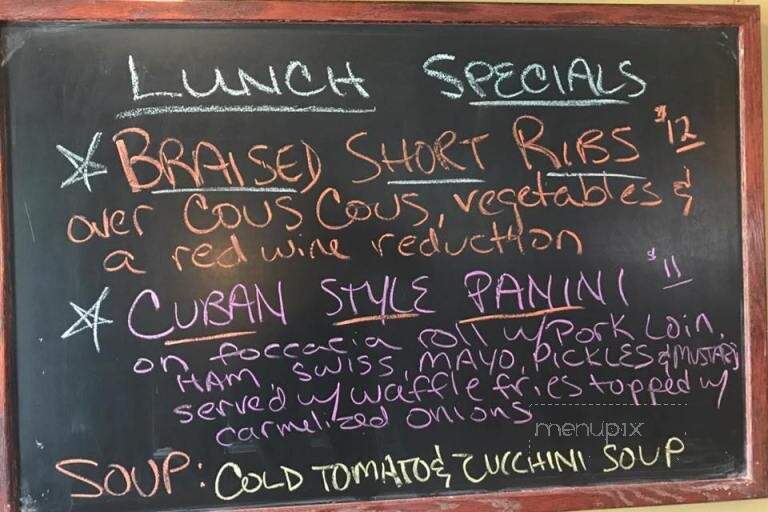 LUNCH SPECIALS
BRAISED SHORT RIBS $12
over COUS COUS, vegetables &
a red wine reduction
CUBAN STYLE PANINI $11
on foccacia roll w/ PORK LOIN,
HAM, SWISS, MAYO, PICKLES & MUSTARD
served w/ waffle fries topped w/
carmelized onions
menupix
SOUP: COLD TOMATO & ZUCCHINI SOUP